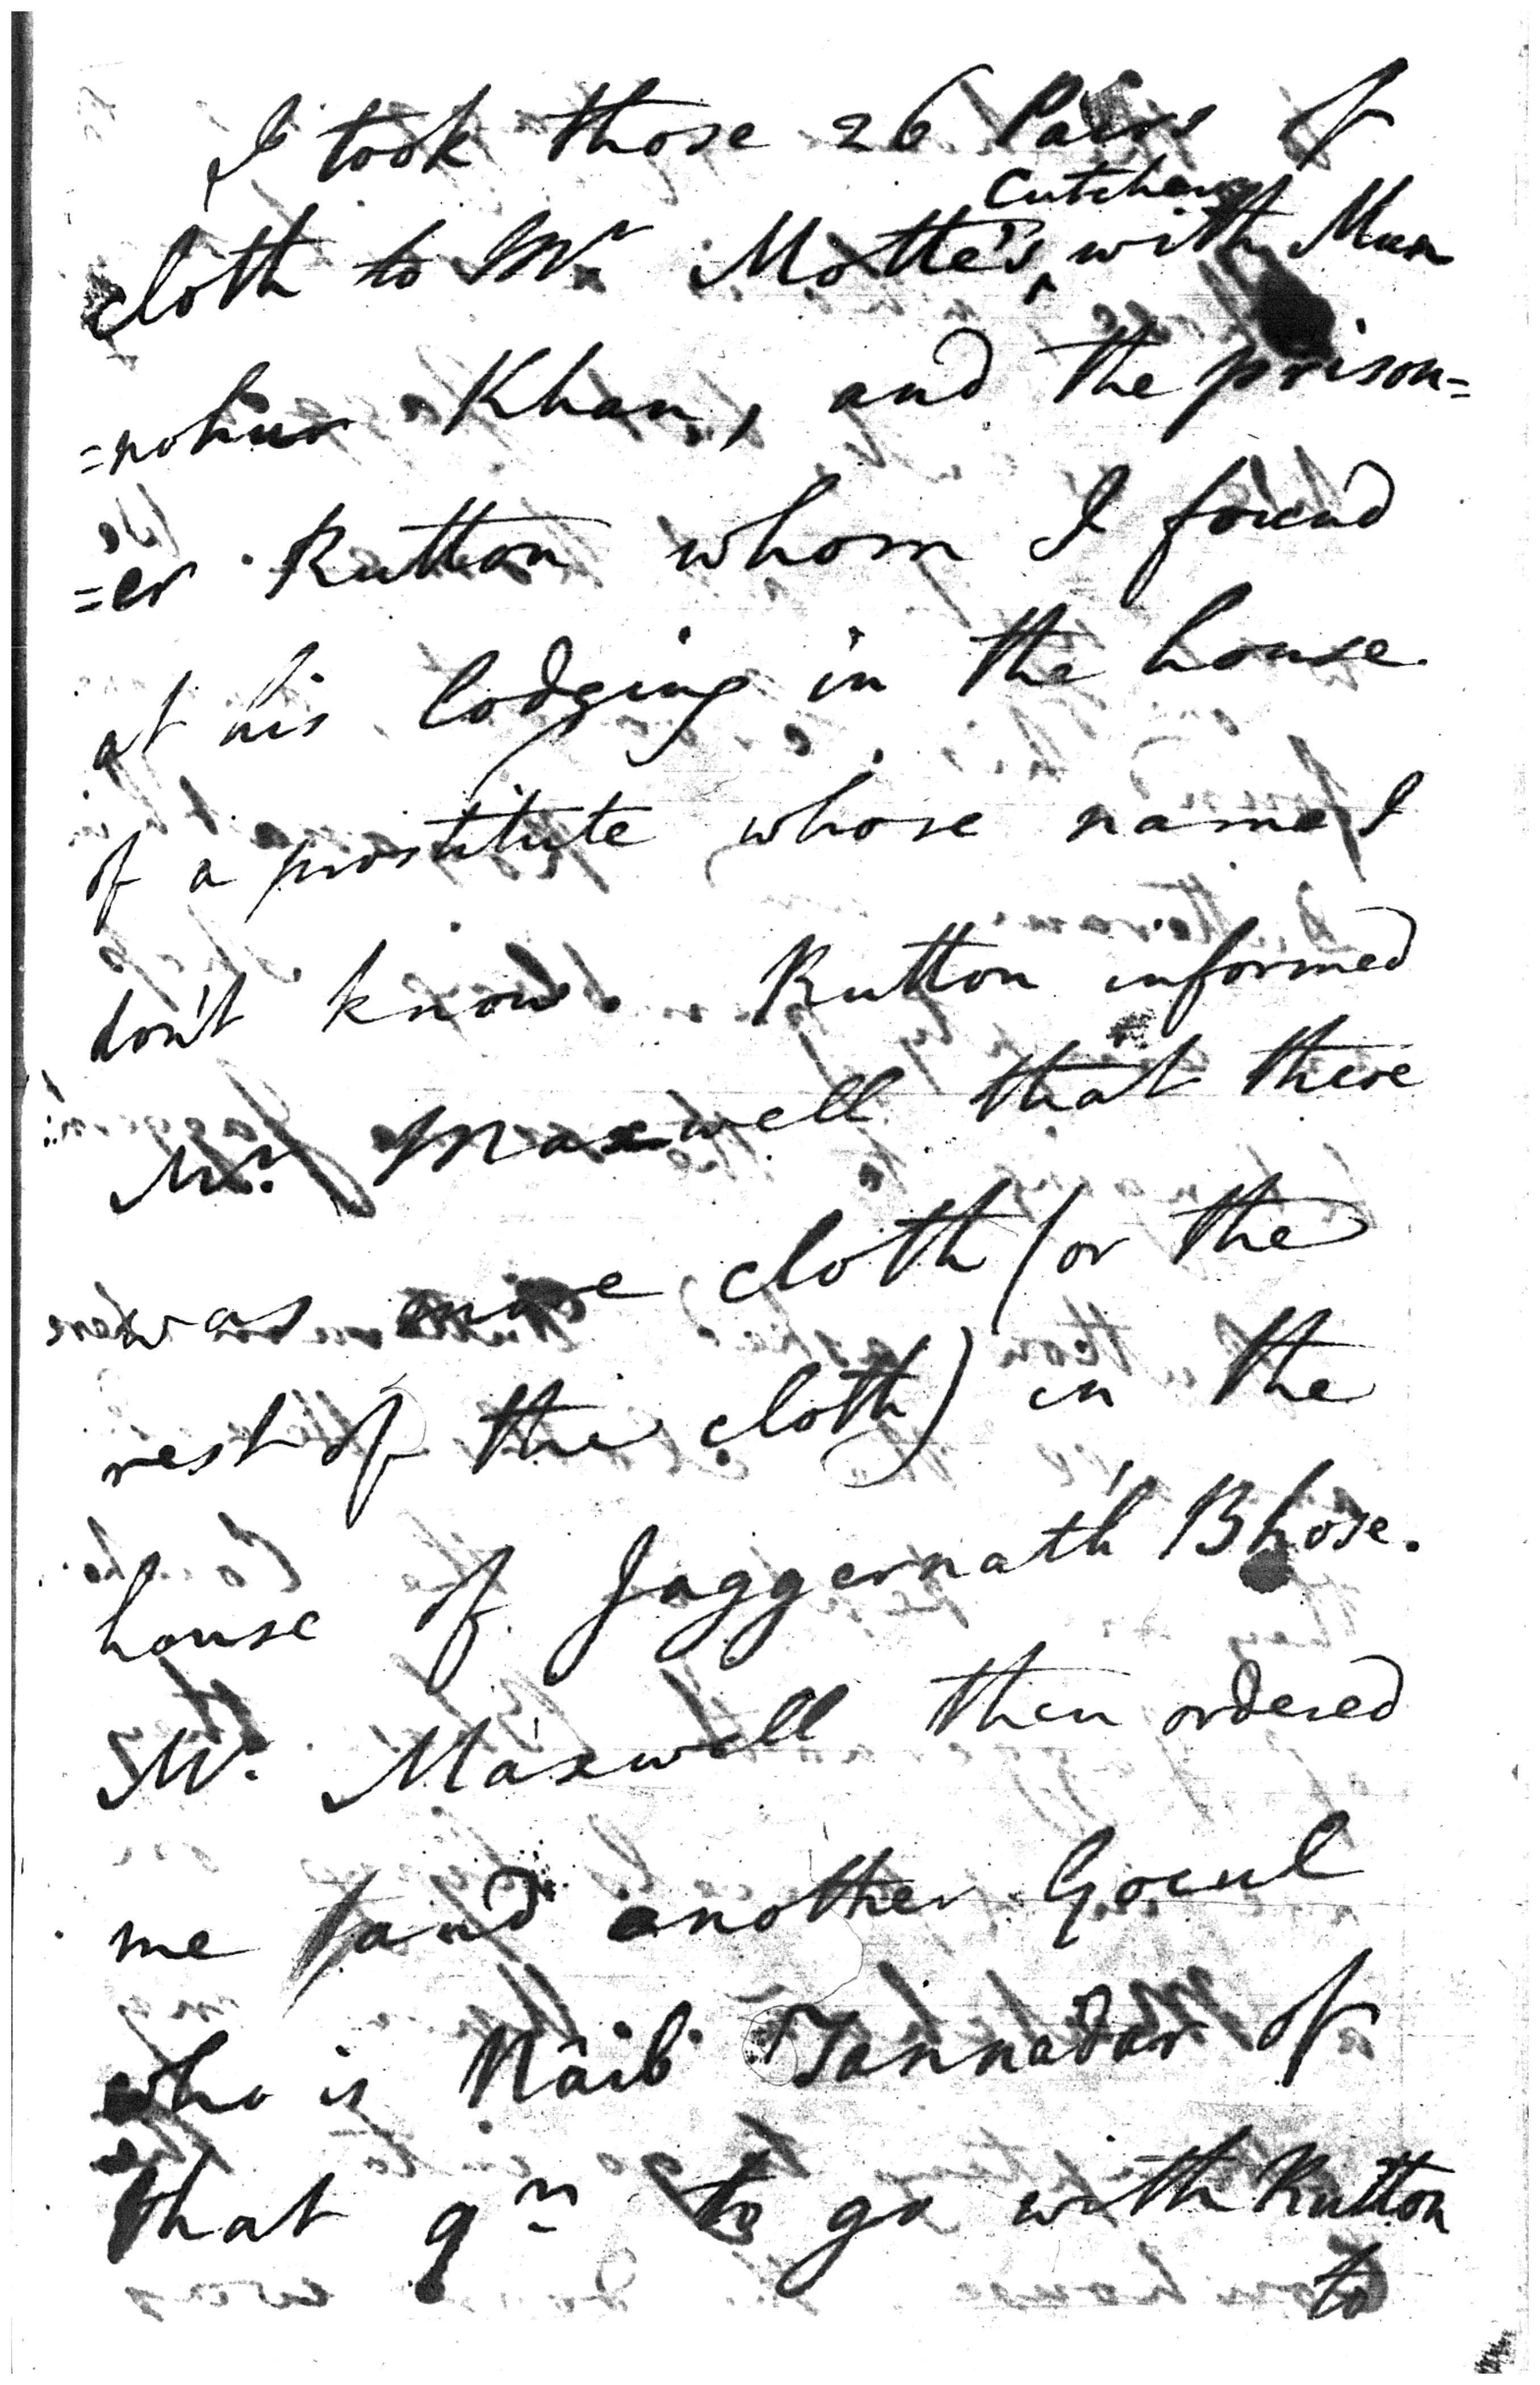 I took those 26 Pairs of
Cutcherry
cloth to Mr Motte's ‸ with Mun
=nohur Khan, and the prison=
=er Rutton whom I found
at his lodging in the house
of a prostitute whose name I
don't know. Rutton informed
Mr. Maxwell that there
was more cloth (or the
rest of the cloth) in the
house of Jaggernath Bhose.
Mr. Maxwell then ordered
me and another Gocul
who is Naib Tannadar of
that qn to go with Rutton
to